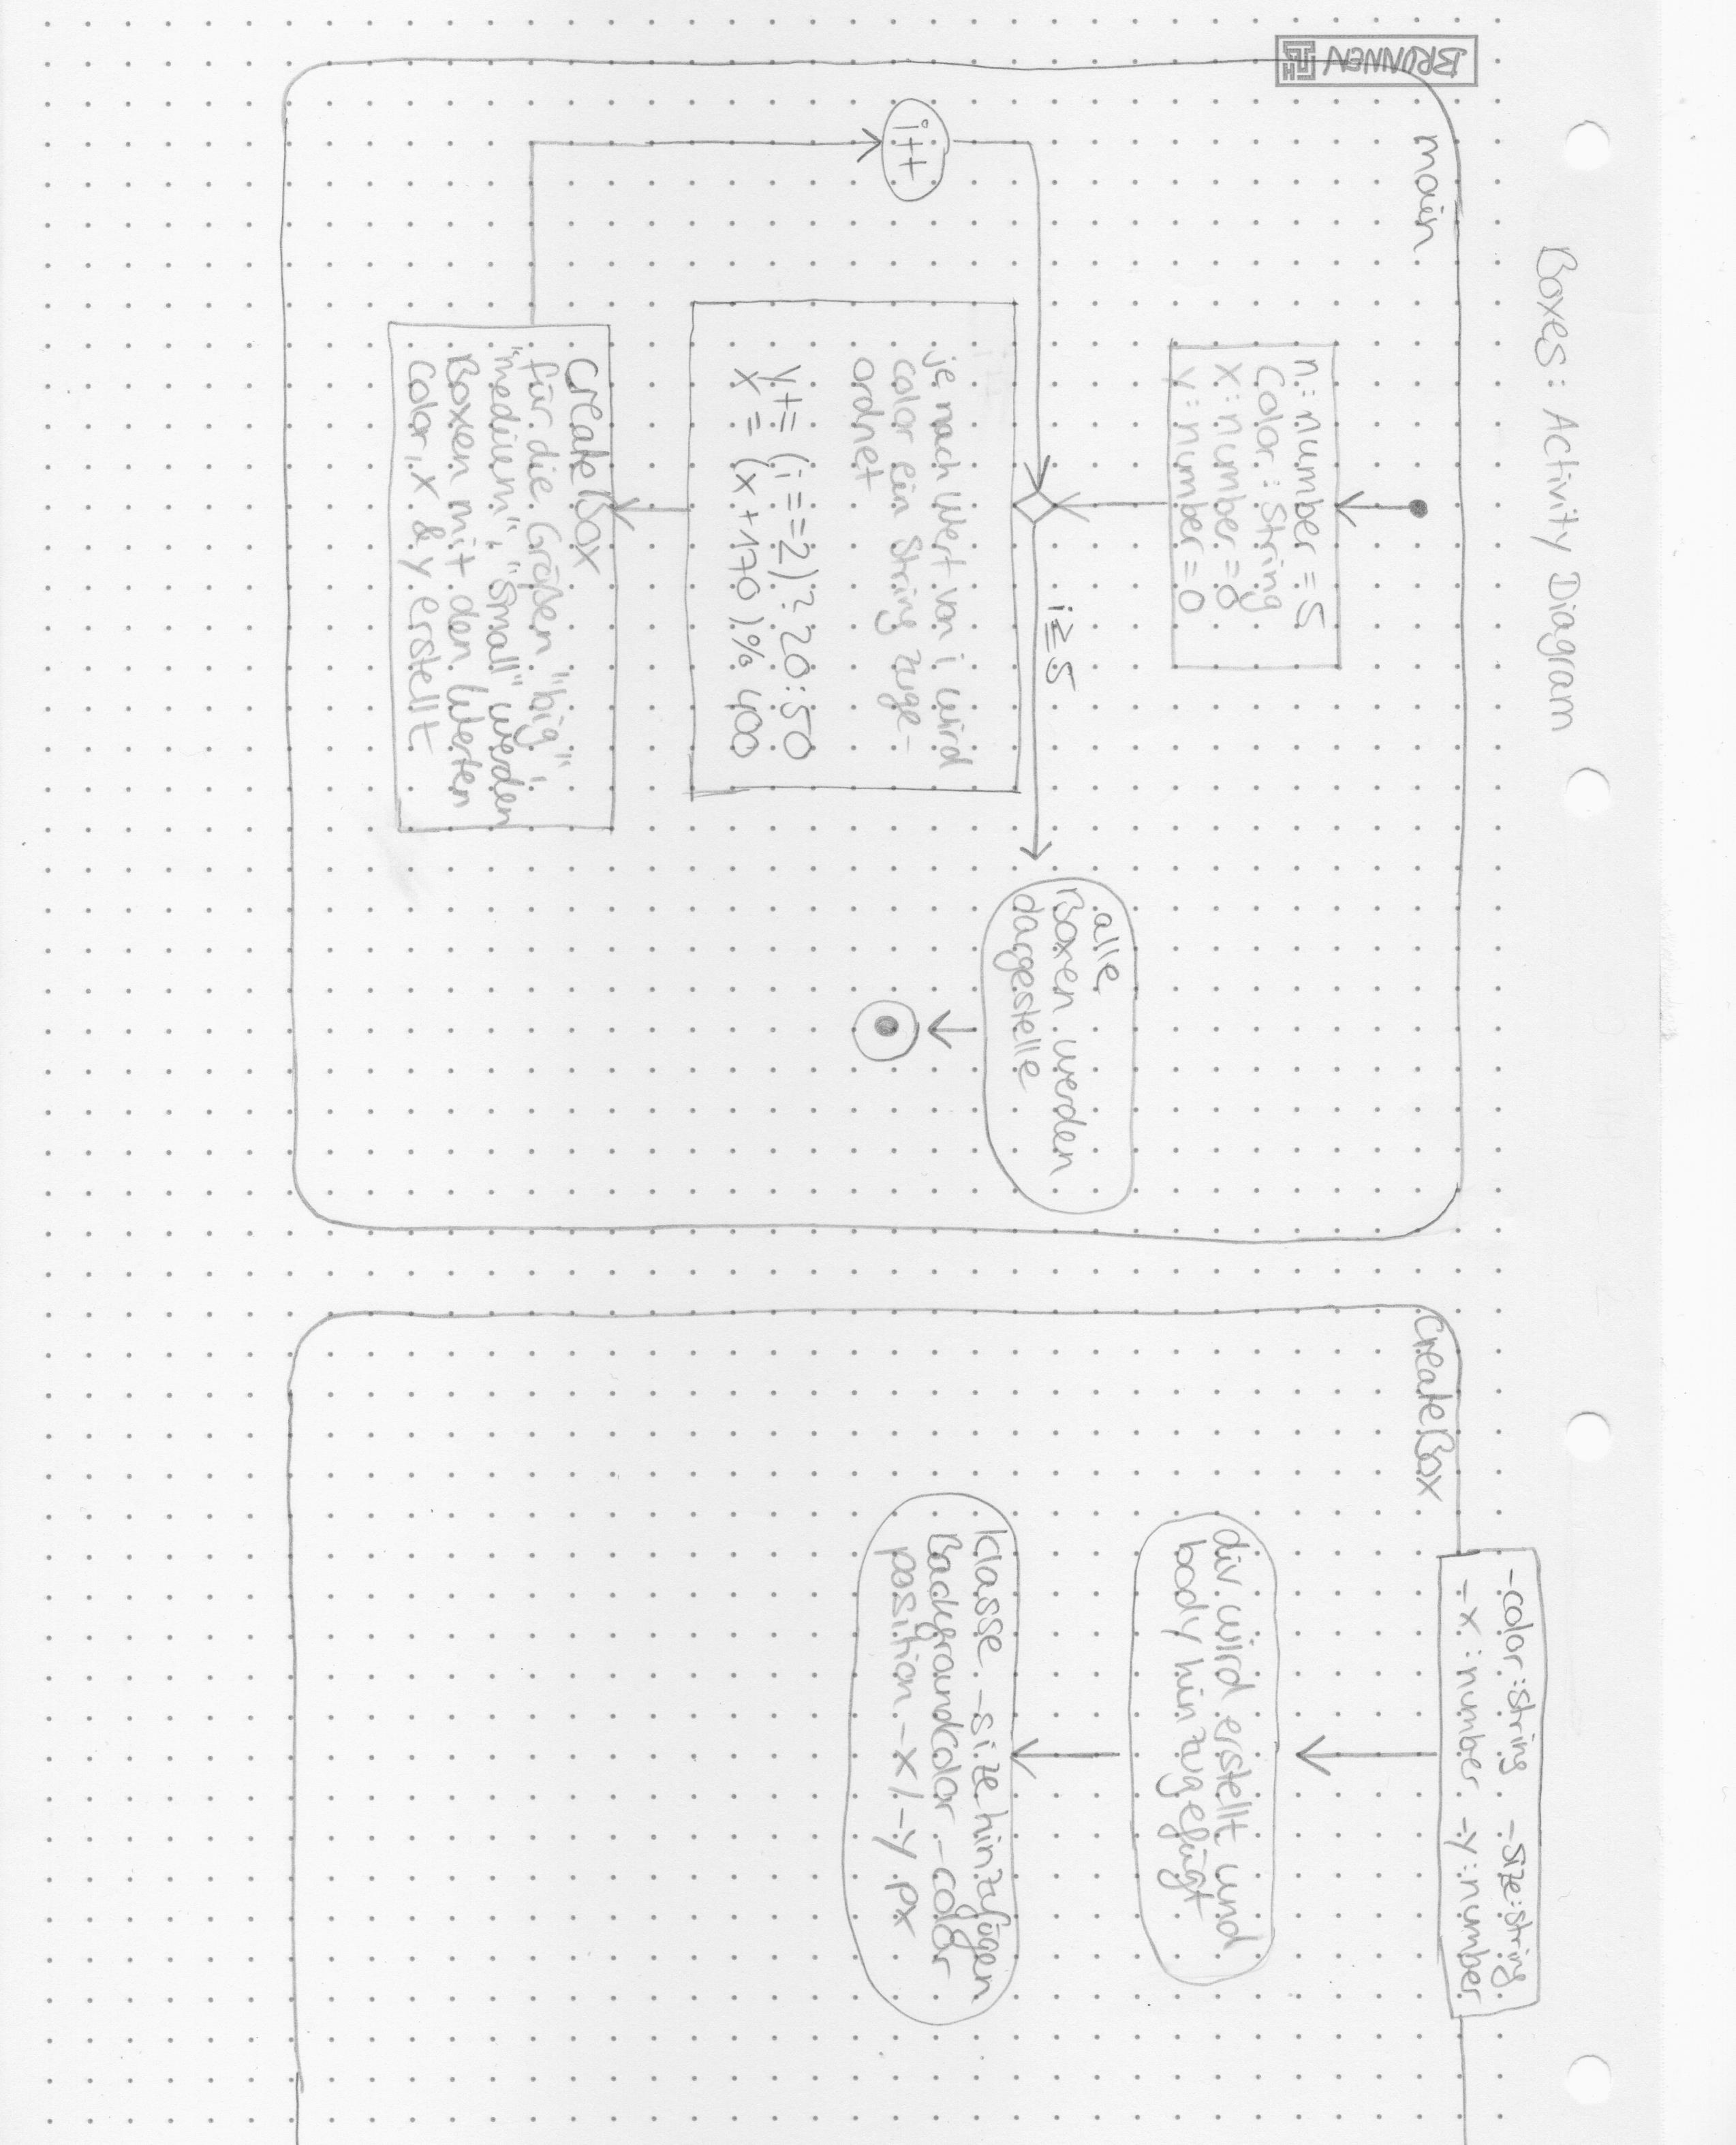 Boxes: Activity Diagram
BRUNNEN
main
n: number = 5
Color: String
x: number = 0
y: number = 0
i ≥ 5
alle
Boxen werden
dargestelle
je nach Wert von i wird
color ein String zuge-
ordnet
y += (i == 2) ? 20 : 50
x = (x + 170) % 400
CreateBox
für die Größen "big",
"medium", "small" werden
Boxen mit den Werten
Color, x & y erstellt
i++
CreateBox
-color: string -size: string
-x: number -y: number
div wird erstellt und
body hinzugefügt
klasse -size hinzufügen
Backgroundcolor -color
position -x / -y px